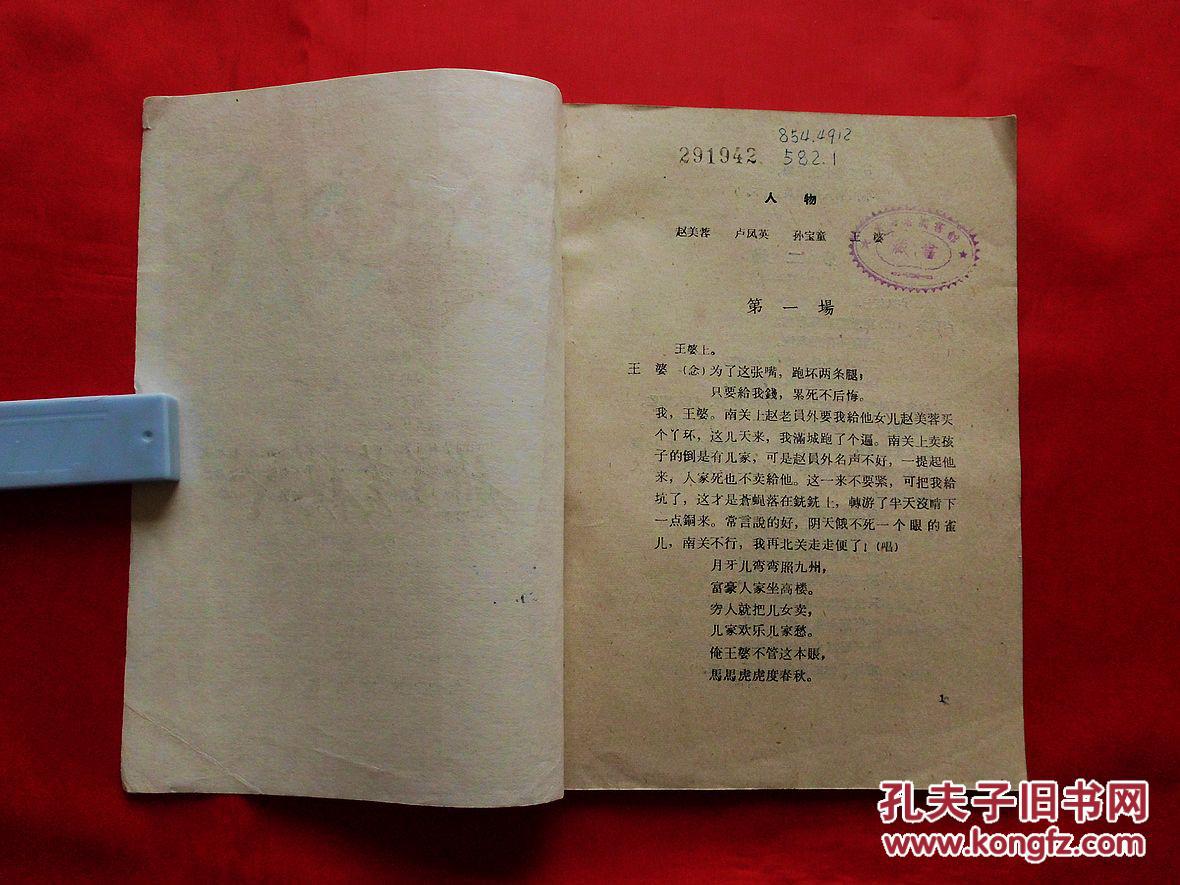 854.4912
291942 582.1
人 物
赵美蓉 卢凤英 孙宝童 王 婆
第 一 場
王婆上。
王 婆 (念)为了这张嘴，跑坏两条腿；
只要給我錢，累死不后悔。
我，王婆。南关上赵老員外要我給他女儿赵美蓉买
个丫环，这几天来，我滿城跑了个遍。南关上卖孩
子的倒是有几家，可是赵員外名声不好，一提起他
来，人家死也不卖給他。这一来不要紧，可把我給
坑了，这才是蒼蝇落在銑銑上，轉游了半天沒啃下
一点銅来。常言說的好，阴天餓不死一个眼的雀
儿，南关不行，我再北关走走便了！(唱)
月牙儿弯弯照九州，
富豪人家坐高楼。
穷人就把儿女卖，
几家欢乐几家愁。
俺王婆不管这本賬，
馬馬虎虎度春秋。
1
孔夫子旧书网
www.kongfz.com